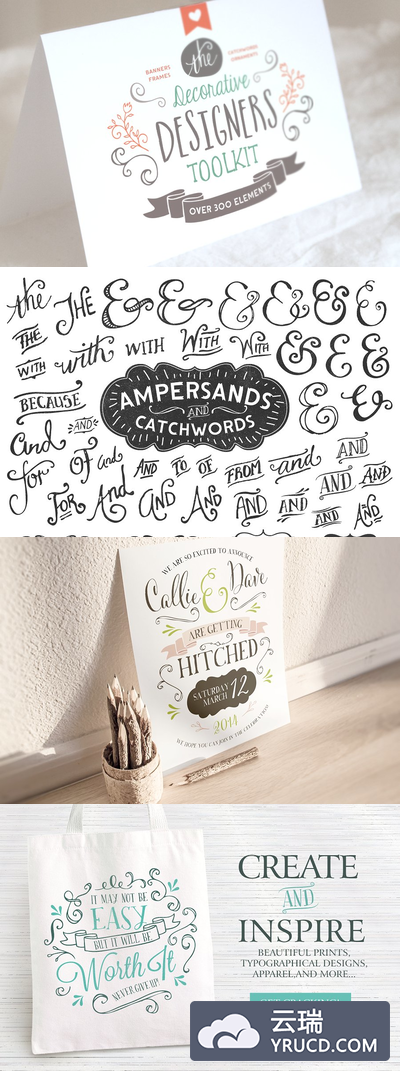 the
BANNERS
FRAMES
CATCHWORDS
ORNAMENTS
Decorative
DESIGNERS
TOOLKIT
OVER 300 ELEMENTS
the THE & & & & & &
THE
WITH with WITH WITH WITH & & &
BECAUSE
AMPERSANDS
AND
CATCHWORDS
& &
and AND
for OF and AND TO OF FROM and AND AND AND
FOR And AND AND AND AND AND AND
WE ARE SO EXCITED TO ANNOUNCE
Callie & Dave
ARE GETTING
HITCHED
SATURDAY
MARCH 12
2014
WE HOPE YOU CAN JOIN IN THE CELEBRATION
IT MAY NOT BE
EASY
BUT IT WILL BE
Worth It
NEVER GIVE UP
CREATE
AND
INSPIRE
BEAUTIFUL PRINTS,
TYPOGRAPHICAL DESIGNS,
APPAREL,AND MORE...
云瑞
YRUCD.COM